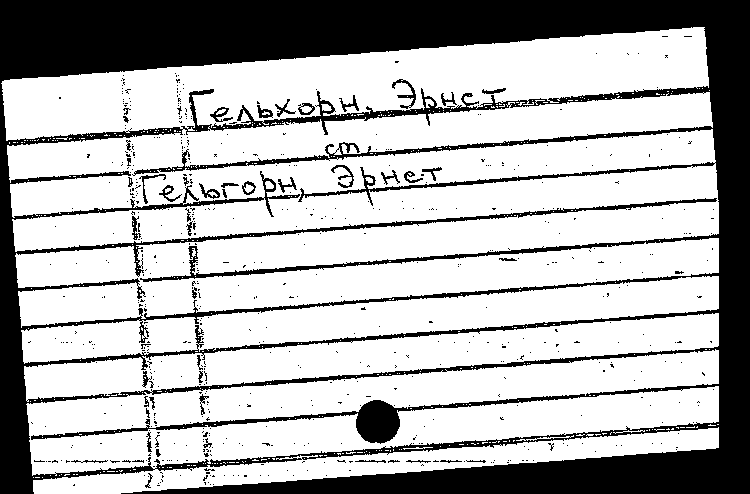 Гельхорн, Эрнст
см.
Гельгорн, Эрнст